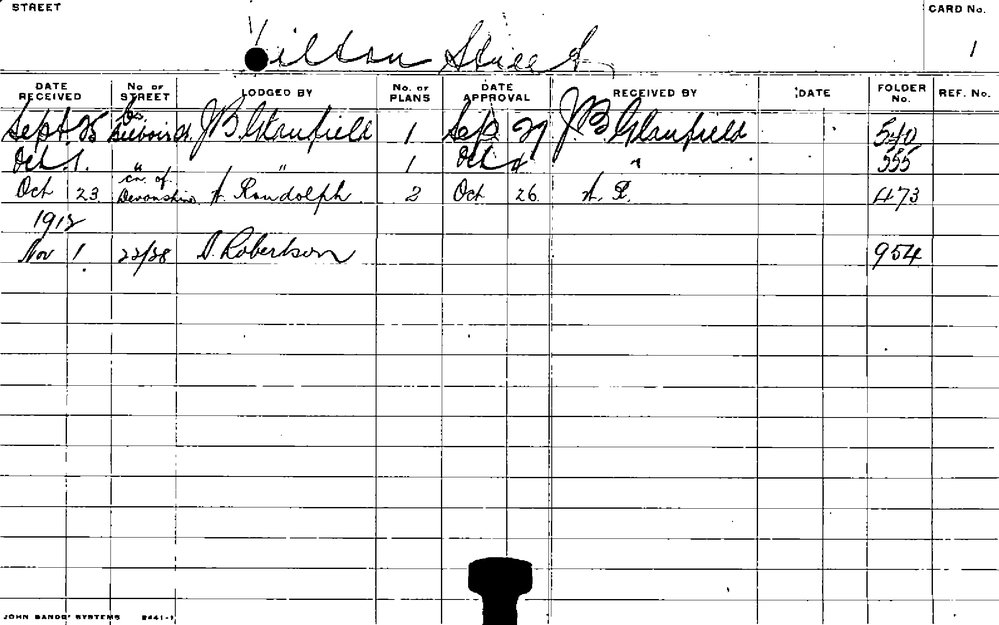 STREET
CARD No.
Wilton Street
1
DATE RECEIVED No. OF STREET LODGED BY No. OF PLANS DATE APPROVAL RECEIVED BY DATE FOLDER No. REF. No.
Sept 25 St. J B Stanfield 1 Sep 27 J B Stanfield 540
Oct 1. " " 1 Oct 4 " 555
Oct 23. cn. of Devonshire A. Randolph 2 Oct 26. A. R. 473
1912
Nov 1. 22/28 D. Robertson 954
JOHN SANDS' SYSTEMS 8441-1